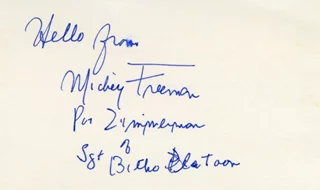 Hello from
Mickey Freeman
Pvt Zimmerman
Sgt Bilko Platoon